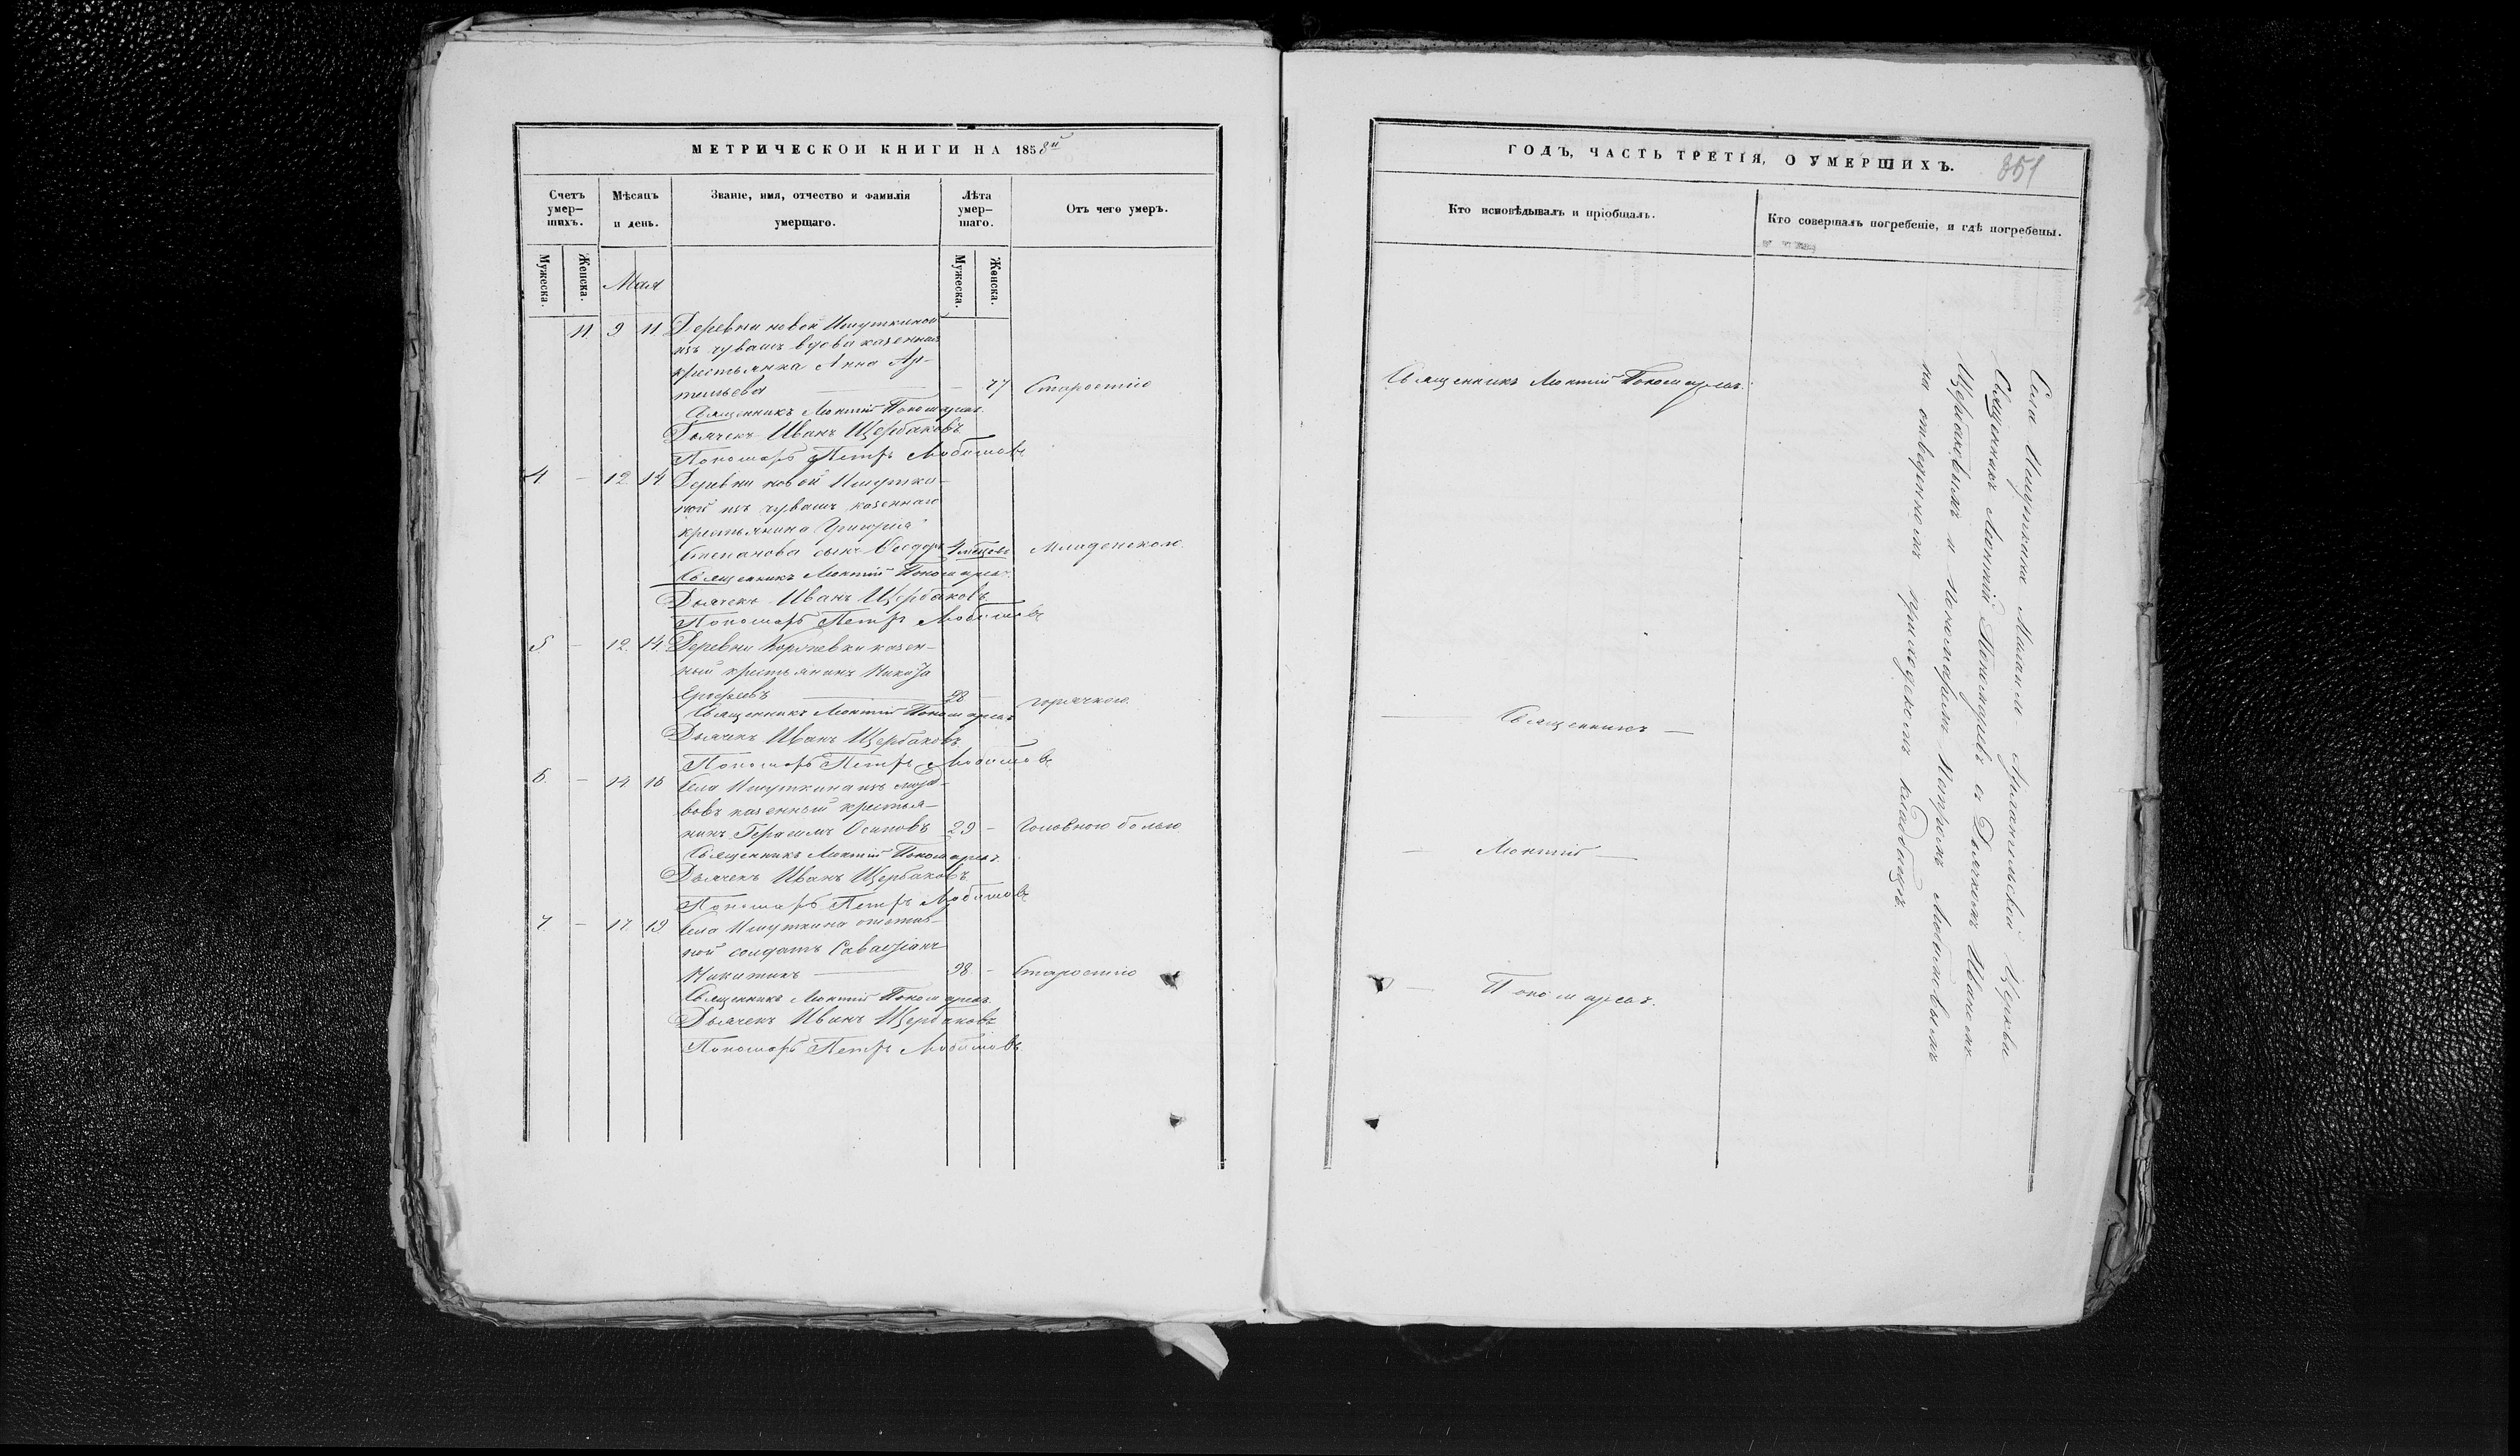 МЕТРИЧЕСКОЙ КНИГИ НА 1858й
Счетъ умер-шихъ.
Мѣсяцъ и день.
Званіе, имя, отчество и фамилія умершаго.
Лѣта умер-шаго.
Отъ чего умеръ.
Мужеска.
Женска.
Мая
Мужеска.
Женска.
11 9 11 Деревни новой Ишуткиной
изъ чувашъ вдова казенная
крестьянка Анна Ар-
темьева — 77 Старостію
Священникъ Леонтій Пономаревъ.
Дьячекъ Иванъ Щербаковъ
Пономарь Петръ Любимовъ
4 — 12 14 Деревни новой Ишутки-
ной изъ чувашъ казеннаго
крестьянина Григорія
Степанова сынъ Ѳеодоръ 4 мѣсецовъ Младенскою.
Священникъ Леонтій Пономаревъ.
Дьячекъ Иванъ Щербаковъ
Пономарь Петръ Любимовъ
5 — 12 14 Деревни казен-
ный крестьянинъ
Ерофеевъ — 28 — горячкою
Священникъ Леонтій Пономаревъ
Дьячекъ Иванъ Щербаковъ
Пономарь Петръ Любимовъ
6 — 14 16 Села Ишуткина изъ морд-
вовъ казенный крестья-
нинъ Герасимъ Осиповъ 29 — Головною болью
Священникъ Леонтій Пономаревъ.
Дьячекъ Иванъ Щербаковъ
Пономарь Петръ Любимовъ
7 — 17 19 Села Ишуткина отстав-
ной солдатъ
Никитинъ — 98 — Старостію
Священникъ Леонтій Пономаревъ.
Дьячекъ Иванъ Щербаковъ
Пономарь Петръ Любимовъ
ГОДЪ, ЧАСТЬ ТРЕТІЯ, О УМЕРШИХЪ.
351
Кто исповѣдывалъ и пріобщалъ.
Кто совершалъ погребеніе, и гдѣ погребены.
Священникъ Леонтій Пономаревъ.
— Священникъ —
— Леонтій —
— Пономаревъ.
Села Ишуткина Михаило-Архангельской Церкви
Священникъ Леонтій Пономаревъ съ Дьячкомъ Иваномъ
Щербаковымъ и Пономаремъ Петромъ Любимовымъ
на отведенномъ приходскомъ кладбищѣ.